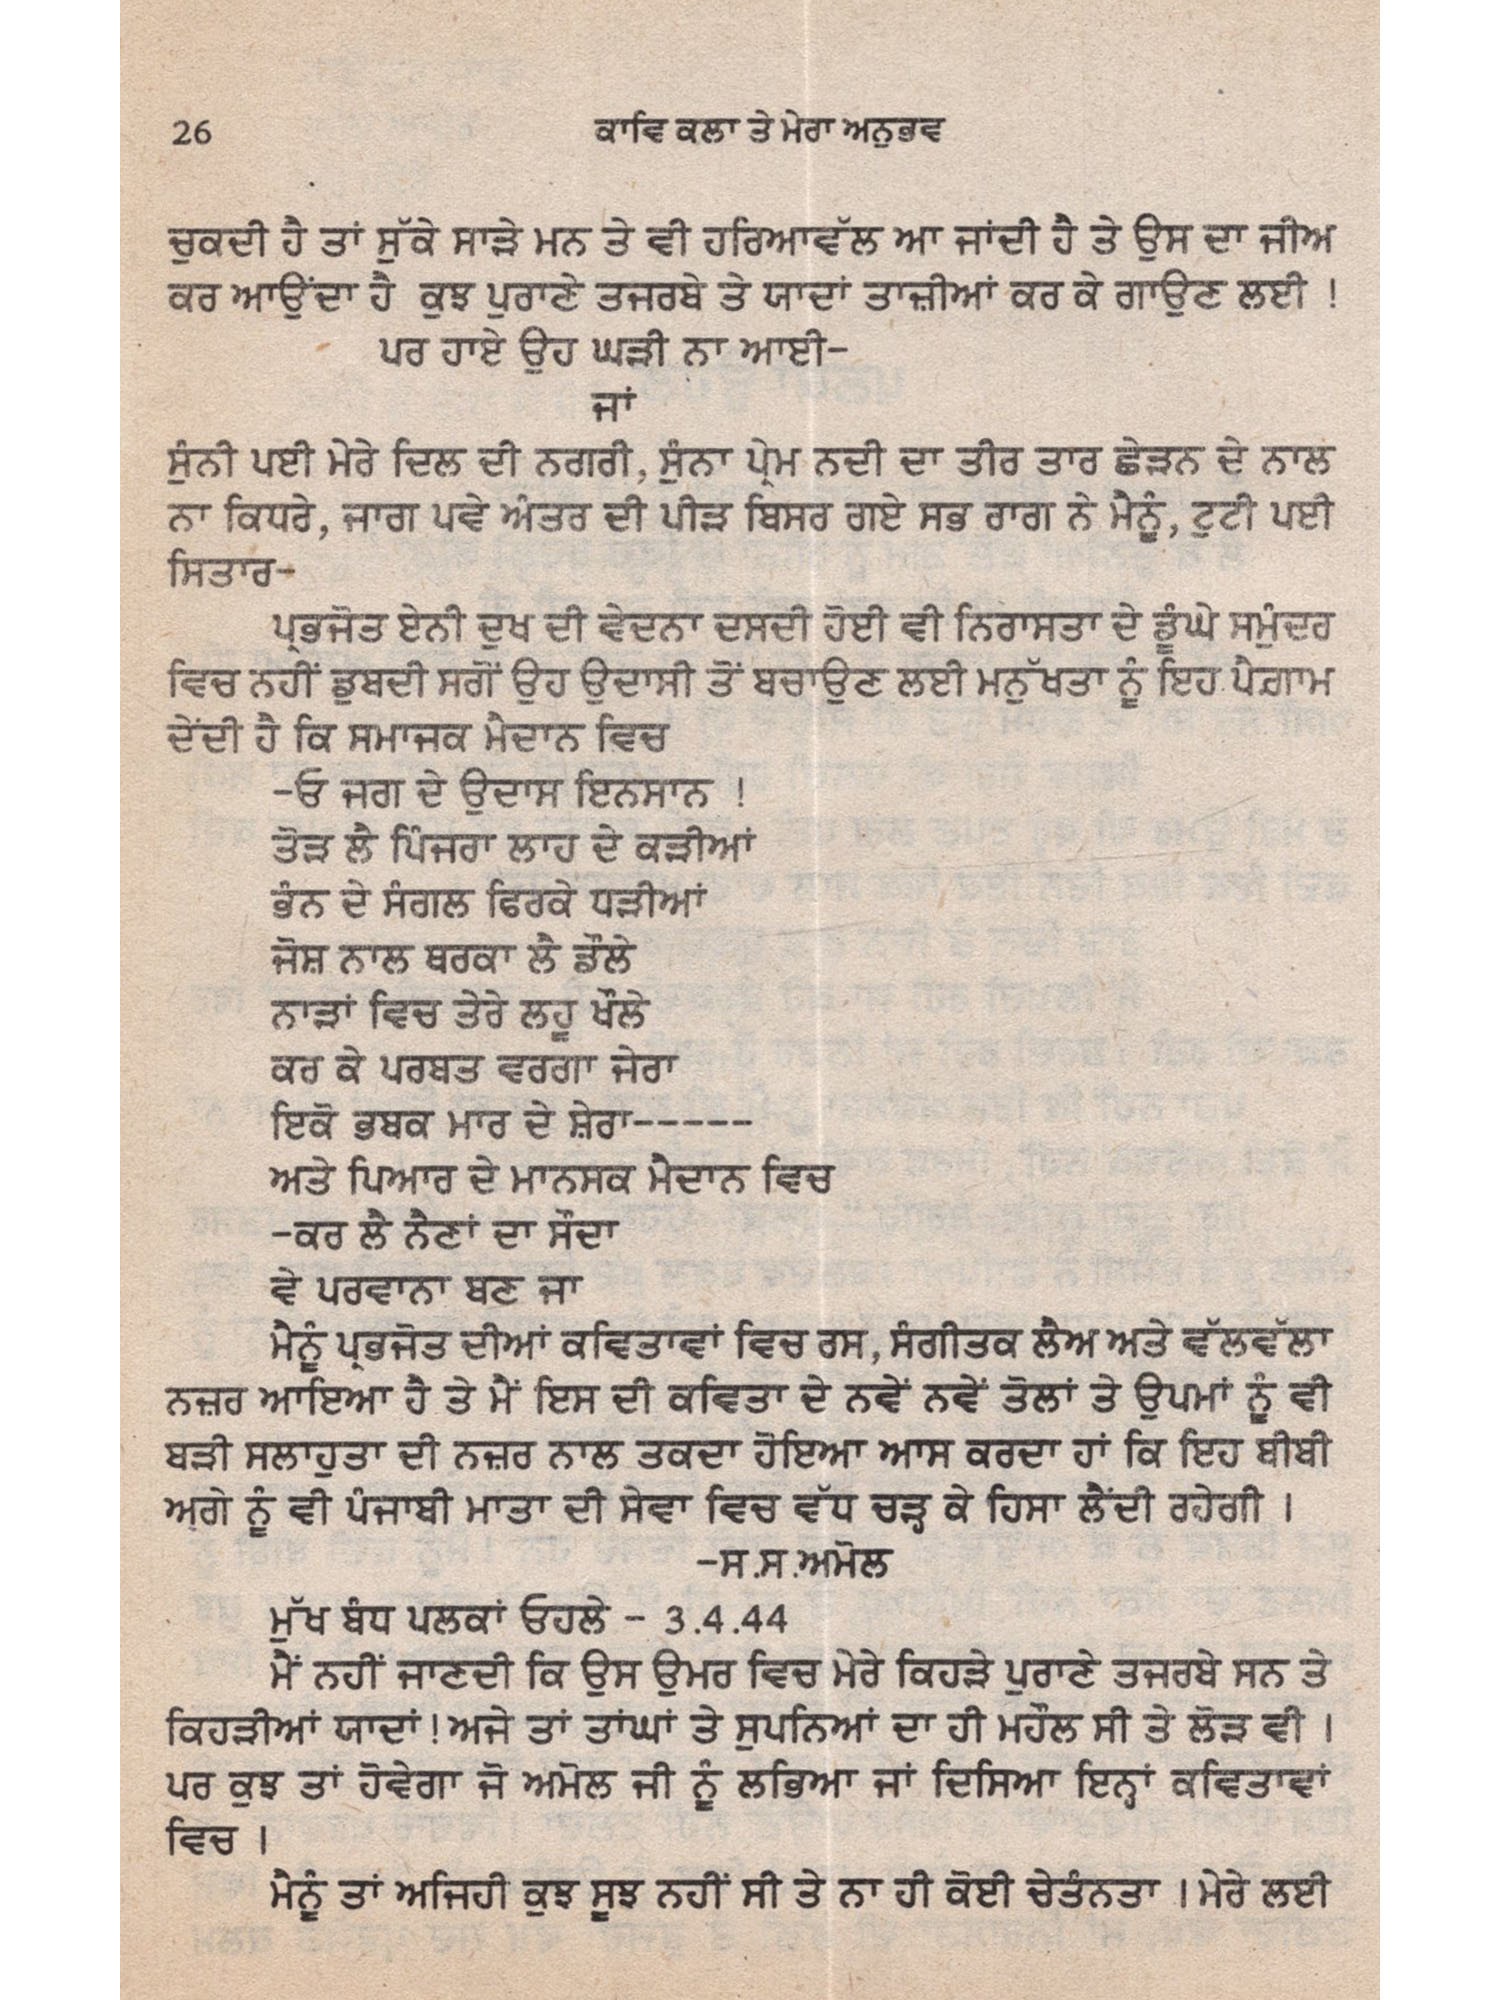 26 ਕਾਵਿ ਕਲਾ ਤੇ ਮੇਰਾ ਅਨੁਭਵ
ਚੁਕਦੀ ਹੈ ਤਾਂ ਸੁੱਕੇ ਸਾੜੇ ਮਨ ਤੇ ਵੀ ਹਰਿਆਵੱਲ ਆ ਜਾਂਦੀ ਹੈ ਤੇ ਉਸ ਦਾ ਜੀਅ
ਕਰ ਆਉਂਦਾ ਹੈ ਕੁਝ ਪੁਰਾਣੇ ਤਜਰਬੇ ਤੇ ਯਾਦਾਂ ਤਾਜ਼ੀਆਂ ਕਰ ਕੇ ਗਾਉਣ ਲਈ !
ਪਰ ਹਾਏ ਉਹ ਘੜੀ ਨਾ ਆਈ-
ਜਾਂ
ਸੁੰਨੀ ਪਈ ਮੇਰੇ ਦਿਲ ਦੀ ਨਗਰੀ, ਸੁੰਨਾ ਪ੍ਰੇਮ ਨਦੀ ਦਾ ਤੀਰ ਤਾਰ ਛੇੜਨ ਦੇ ਨਾਲ
ਨਾ ਕਿਧਰੇ, ਜਾਗ ਪਵੇ ਅੰਤਰ ਦੀ ਪੀੜ ਬਿਸਰ ਗਏ ਸਭ ਰਾਗ ਨੇ ਮੈਨੂੰ, ਟੁਟੀ ਪਈ
ਸਿਤਾਰ-
ਪ੍ਰਭਜੋਤ ਏਨੀ ਦੁਖ ਦੀ ਵੇਦਨਾ ਦਸਦੀ ਹੋਈ ਵੀ ਨਿਰਾਸਤਾ ਦੇ ਡੂੰਘੇ ਸਮੁੰਦਰ
ਵਿਚ ਨਹੀਂ ਡੁਬਦੀ ਸਗੋਂ ਉਹ ਉਦਾਸੀ ਤੋਂ ਬਚਾਉਣ ਲਈ ਮਨੁੱਖਤਾ ਨੂੰ ਇਹ ਪੈਗ਼ਾਮ
ਦੇਂਦੀ ਹੈ ਕਿ ਸਮਾਜਕ ਮੈਦਾਨ ਵਿਚ
-ਓ ਜਗ ਦੇ ਉਦਾਸ ਇਨਸਾਨ !
ਤੋੜ ਲੈ ਪਿੰਜਰਾ ਲਾਹ ਦੇ ਕੜੀਆਂ
ਭੰਨ ਦੇ ਸੰਗਲ ਫਿਰਕੇ ਧੜੀਆਂ
ਜੋਸ਼ ਨਾਲ ਥਰਕਾ ਲੈ ਡੌਲੇ
ਨਾੜਾਂ ਵਿਚ ਤੇਰੇ ਲਹੂ ਖੌਲੇ
ਕਰ ਕੇ ਪਰਬਤ ਵਰਗਾ ਜੇਰਾ
ਇਕੋ ਭਬਕ ਮਾਰ ਦੇ ਸ਼ੇਰਾ-----
ਅਤੇ ਪਿਆਰ ਦੇ ਮਾਨਸਕ ਮੈਦਾਨ ਵਿਚ
-ਕਰ ਲੈ ਨੈਣਾਂ ਦਾ ਸੌਦਾ
ਵੇ ਪਰਵਾਨਾ ਬਣ ਜਾ
ਮੈਨੂੰ ਪ੍ਰਭਜੋਤ ਦੀਆਂ ਕਵਿਤਾਵਾਂ ਵਿਚ ਰਸ, ਸੰਗੀਤਕ ਲੈਅ ਅਤੇ ਵੱਲਵੱਲਾ
ਨਜ਼ਰ ਆਇਆ ਹੈ ਤੇ ਮੈਂ ਇਸ ਦੀ ਕਵਿਤਾ ਦੇ ਨਵੇਂ ਨਵੇਂ ਤੋਲਾਂ ਤੇ ਉਪਮਾਂ ਨੂੰ ਵੀ
ਬੜੀ ਸਲਾਹੁਤਾ ਦੀ ਨਜ਼ਰ ਨਾਲ ਤਕਦਾ ਹੋਇਆ ਆਸ ਕਰਦਾ ਹਾਂ ਕਿ ਇਹ ਬੀਬੀ
ਅਗੇ ਨੂੰ ਵੀ ਪੰਜਾਬੀ ਮਾਤਾ ਦੀ ਸੇਵਾ ਵਿਚ ਵੱਧ ਚੜ੍ਹ ਕੇ ਹਿਸਾ ਲੈਂਦੀ ਰਹੇਗੀ ।
-ਸ.ਸ.ਅਮੋਲ
ਮੁੱਖ ਬੰਧ ਪਲਕਾਂ ਓਹਲੇ - 3.4.44
ਮੈਂ ਨਹੀਂ ਜਾਣਦੀ ਕਿ ਉਸ ਉਮਰ ਵਿਚ ਮੇਰੇ ਕਿਹੜੇ ਪੁਰਾਣੇ ਤਜਰਬੇ ਸਨ ਤੇ
ਕਿਹੜੀਆਂ ਯਾਦਾਂ! ਅਜੇ ਤਾਂ ਤਾਂਘਾਂ ਤੇ ਸੁਪਨਿਆਂ ਦਾ ਹੀ ਮਹੌਲ ਸੀ ਤੇ ਲੋੜ ਵੀ ।
ਪਰ ਕੁਝ ਤਾਂ ਹੋਵੇਗਾ ਜੋ ਅਮੋਲ ਜੀ ਨੂੰ ਲਭਿਆ ਜਾਂ ਦਿਸਿਆ ਇਨ੍ਹਾਂ ਕਵਿਤਾਵਾਂ
ਵਿਚ ।
ਮੈਨੂੰ ਤਾਂ ਅਜਿਹੀ ਕੁਝ ਸੂਝ ਨਹੀਂ ਸੀ ਤੇ ਨਾ ਹੀ ਕੋਈ ਚੇਤੰਨਤਾ । ਮੇਰੇ ਲਈ